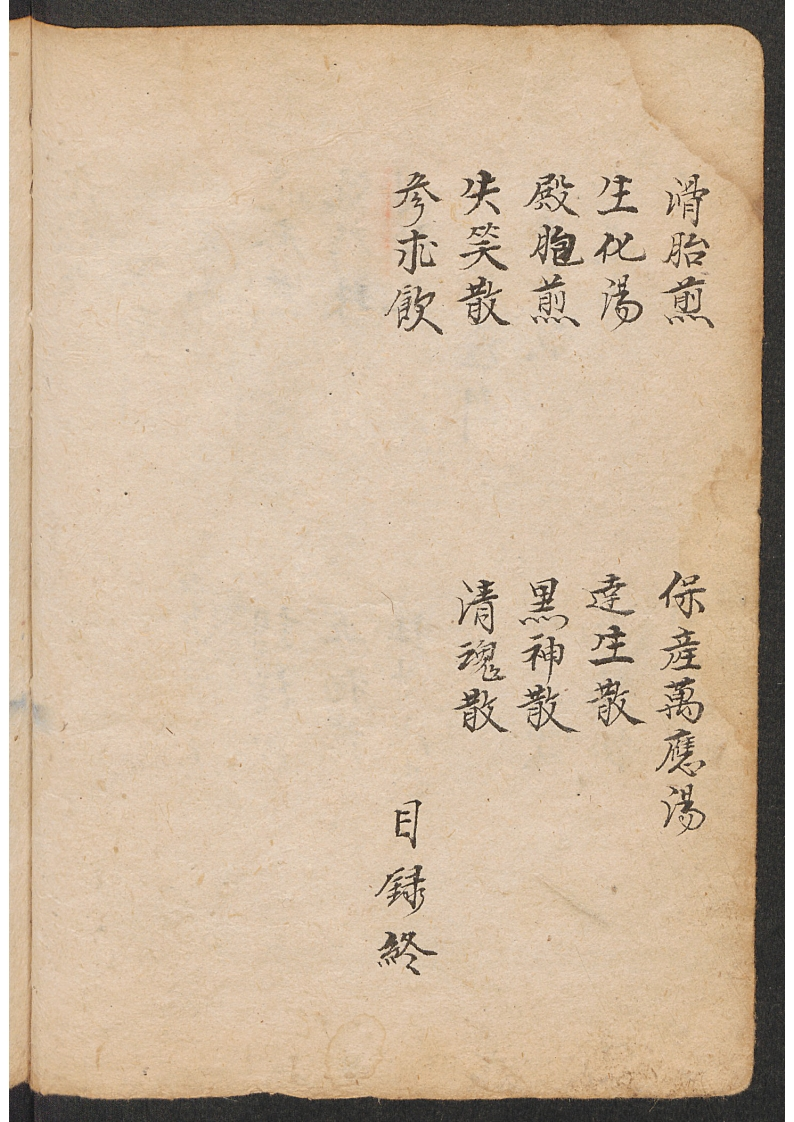 滑胎煎　保産萬應湯
生化湯　達生散
殿胞煎　黒神散
失笑散　清魂散
参朮飲　目録終